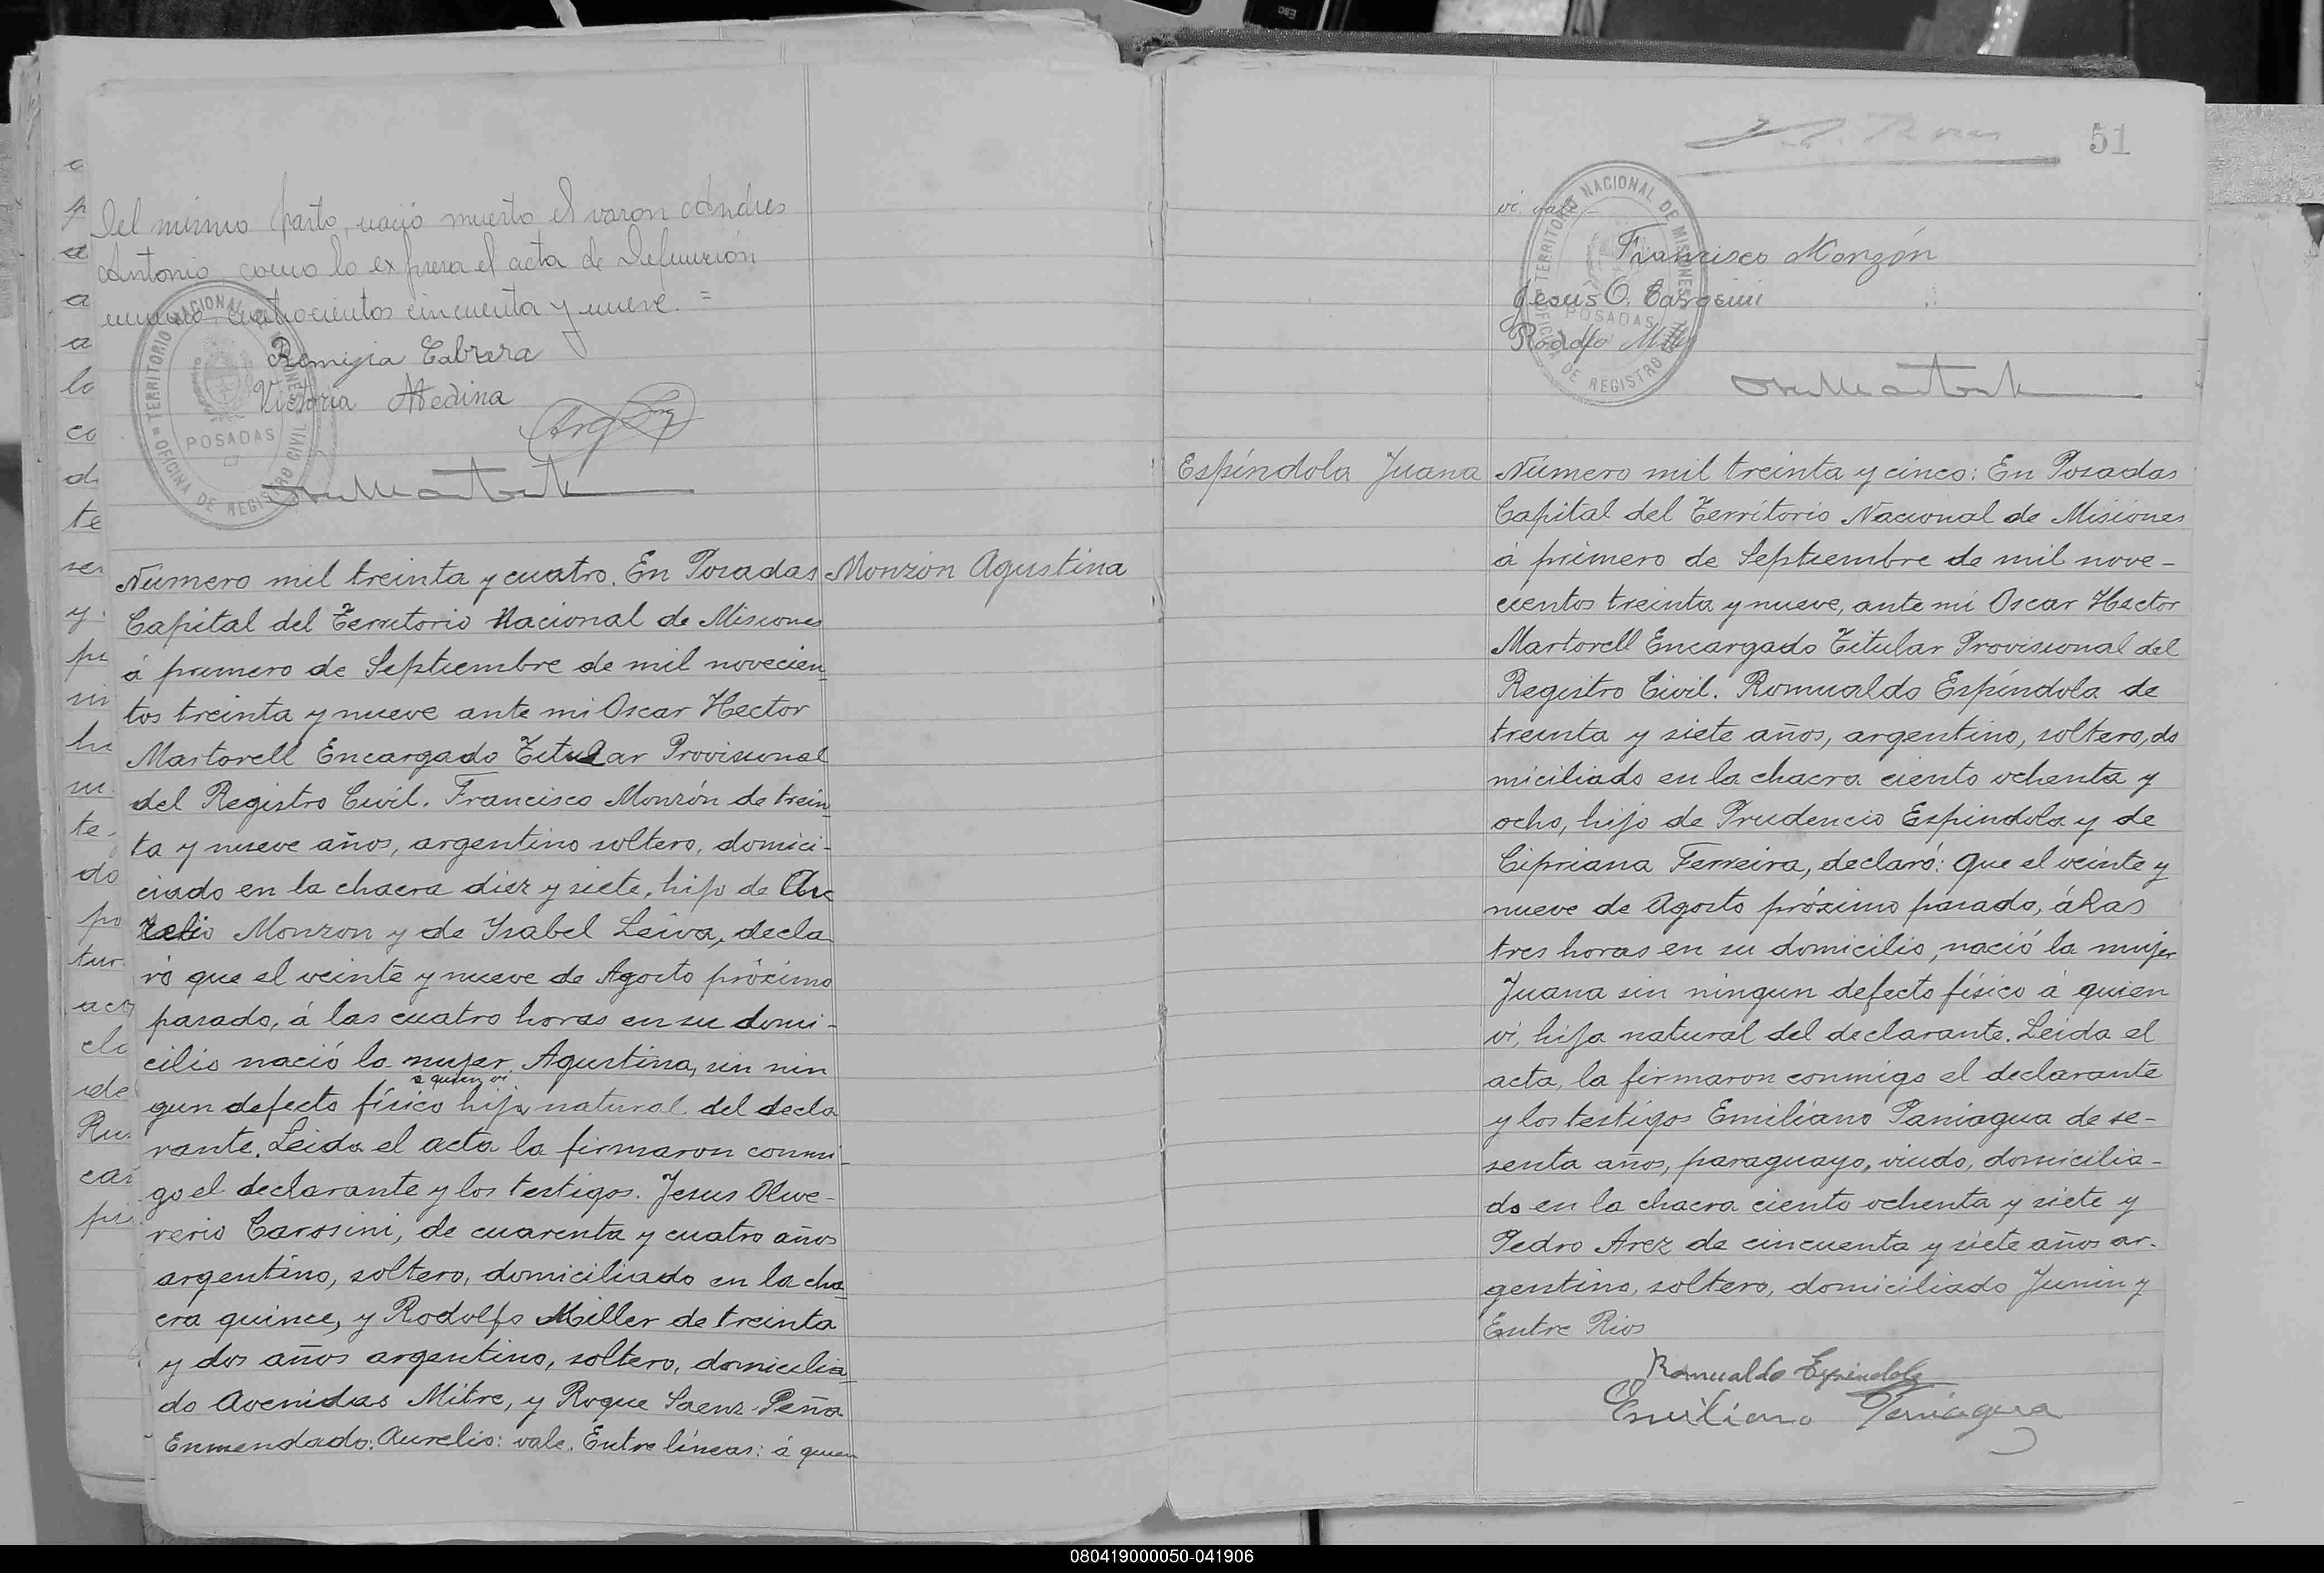 Del mismo parto, nació muerto el varon Andres
Antonio, como lo expresa el acta de Defunción
número cuatrocientos cincuenta y nueve. =
Remigia Cabrera
Victoria Medina
TERRITORIO NACIONAL DE MISIONES
POSADAS
OFICINA DE REGISTRO CIVIL
Número mil treinta y cuatro. En Posadas
Capital del Territorio Nacional de Misiones
á primero de Septiembre de mil novecien
tos treinta y nueve ante mi Oscar Hector
Martorell Encargado Titular Provisional
del Registro Civil. Francisco Monzón de trein
ta y nueve años, argentino soltero, domici-
ciado en la chacra diez y siete, hijo de Au
relio Monzon y de Isabel Leiva, decla
ró que el veinte y nueve de Agosto próximo
pasado, á las cuatro horas en su domi-
cilio nació la mujer Agustina, sin nin
a quien vi
gun defecto físico hija natural del decla
rante. Leida el acta la firmaron conmi-
go el declarante y los testigos. Jesus Olive-
rerio Carosini, de cuarenta y cuatro años
argentino, soltero, domiciliado en la cha
cra quince, y Rodolfo Miller de treinta
y dos años argentino, soltero, domicilia
do Avenidas Mitre, y Roque Saenz Peña
Enmendado: Aurelio: vale. Entre líneas: á quien
Monzón Agustina
51
vi. vale
TERRITORIO NACIONAL DE MISIONES
POSADAS
OFICINA DE REGISTRO
Francisco Monzón
Jesus O. Carosini
Rodolfo Miller
Espíndola Juana
Número mil treinta y cinco: En Posadas
Capital del Territorio Nacional de Misiones
á primero de Septiembre de mil nove-
cientos treinta y nueve, ante mi Oscar Hector
Martorell Encargado Titular Provisional del
Registro Civil. Romualdo Espíndola de
treinta y siete años, argentino, soltero, do
miciliado en la chacra ciento ochenta y
ocho, hijo de Prudencio Espindola y de
Cipriana Ferreira, declaró: Que el veinte y
nueve de Agosto próximo pasado, á las
tres horas en su domicilio, nació la mujer
Juana sin ningun defecto físico á quien
vi, hija natural del declarante. Leida el
acta, la firmaron conmigo el declarante
y los testigos Emiliano Paniagua de se-
senta años, paraguayo, viudo, domicilia-
do en la chacra ciento ochenta y siete y
Pedro Arez de cincuenta y siete años ar-
gentino, soltero, domiciliado Junin y
Entre Rios
Romualdo Espindola
Emiliano Paniagua
080419000050-041906